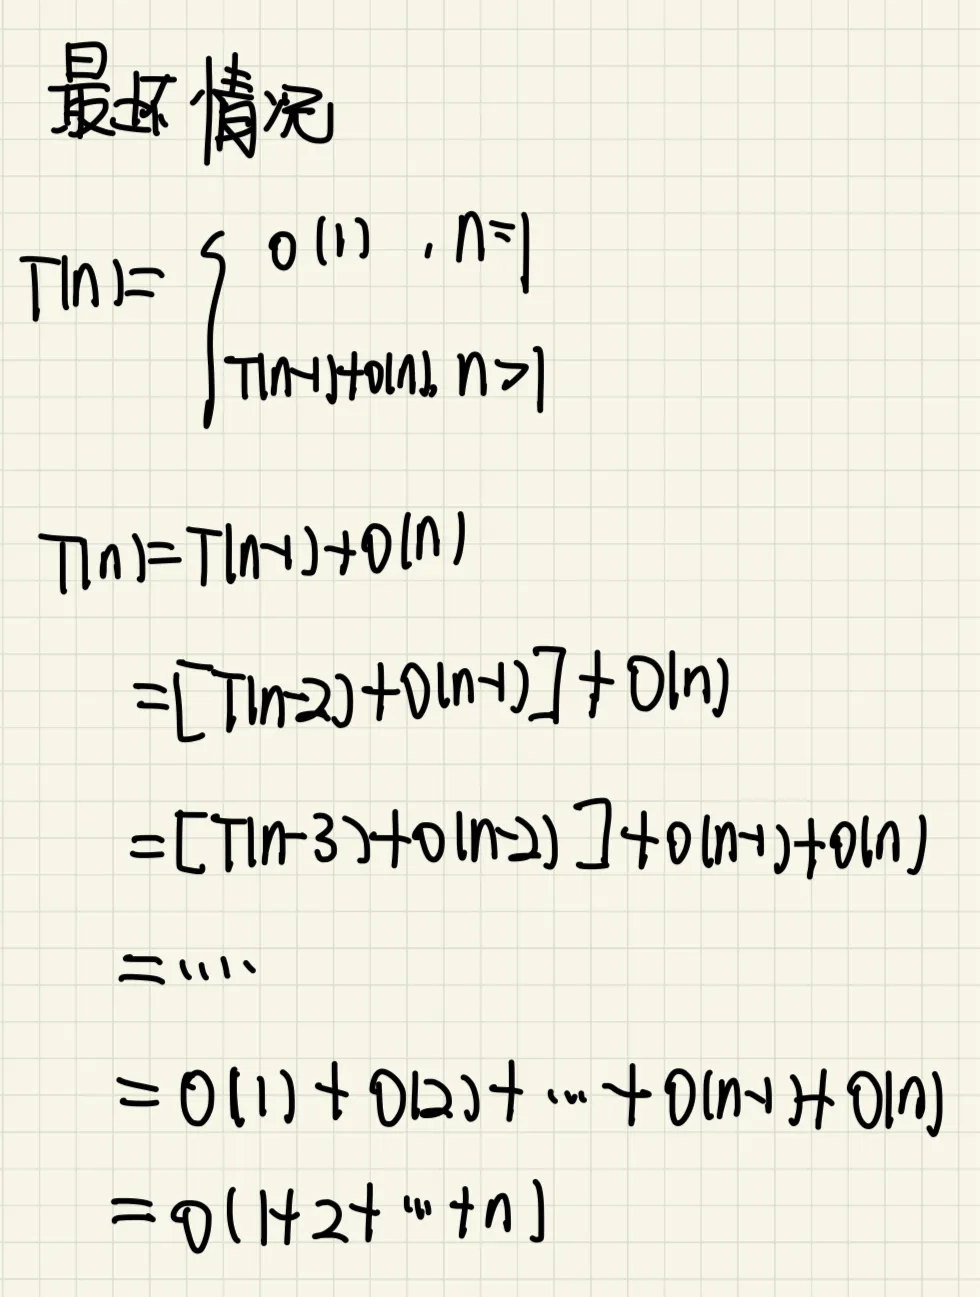 最坏情况
T(n)= { O(1) , n=1
T(n-1)+O(n), n>1
T(n)=T(n-1)+O(n)
=[T(n-2)+O(n-1)]+O(n)
=[T(n-3)+O(n-2)]+O(n-1)+O(n)
=....
=O(1)+O(2)+...+O(n-1)+O(n)
=O(1+2+...+n)